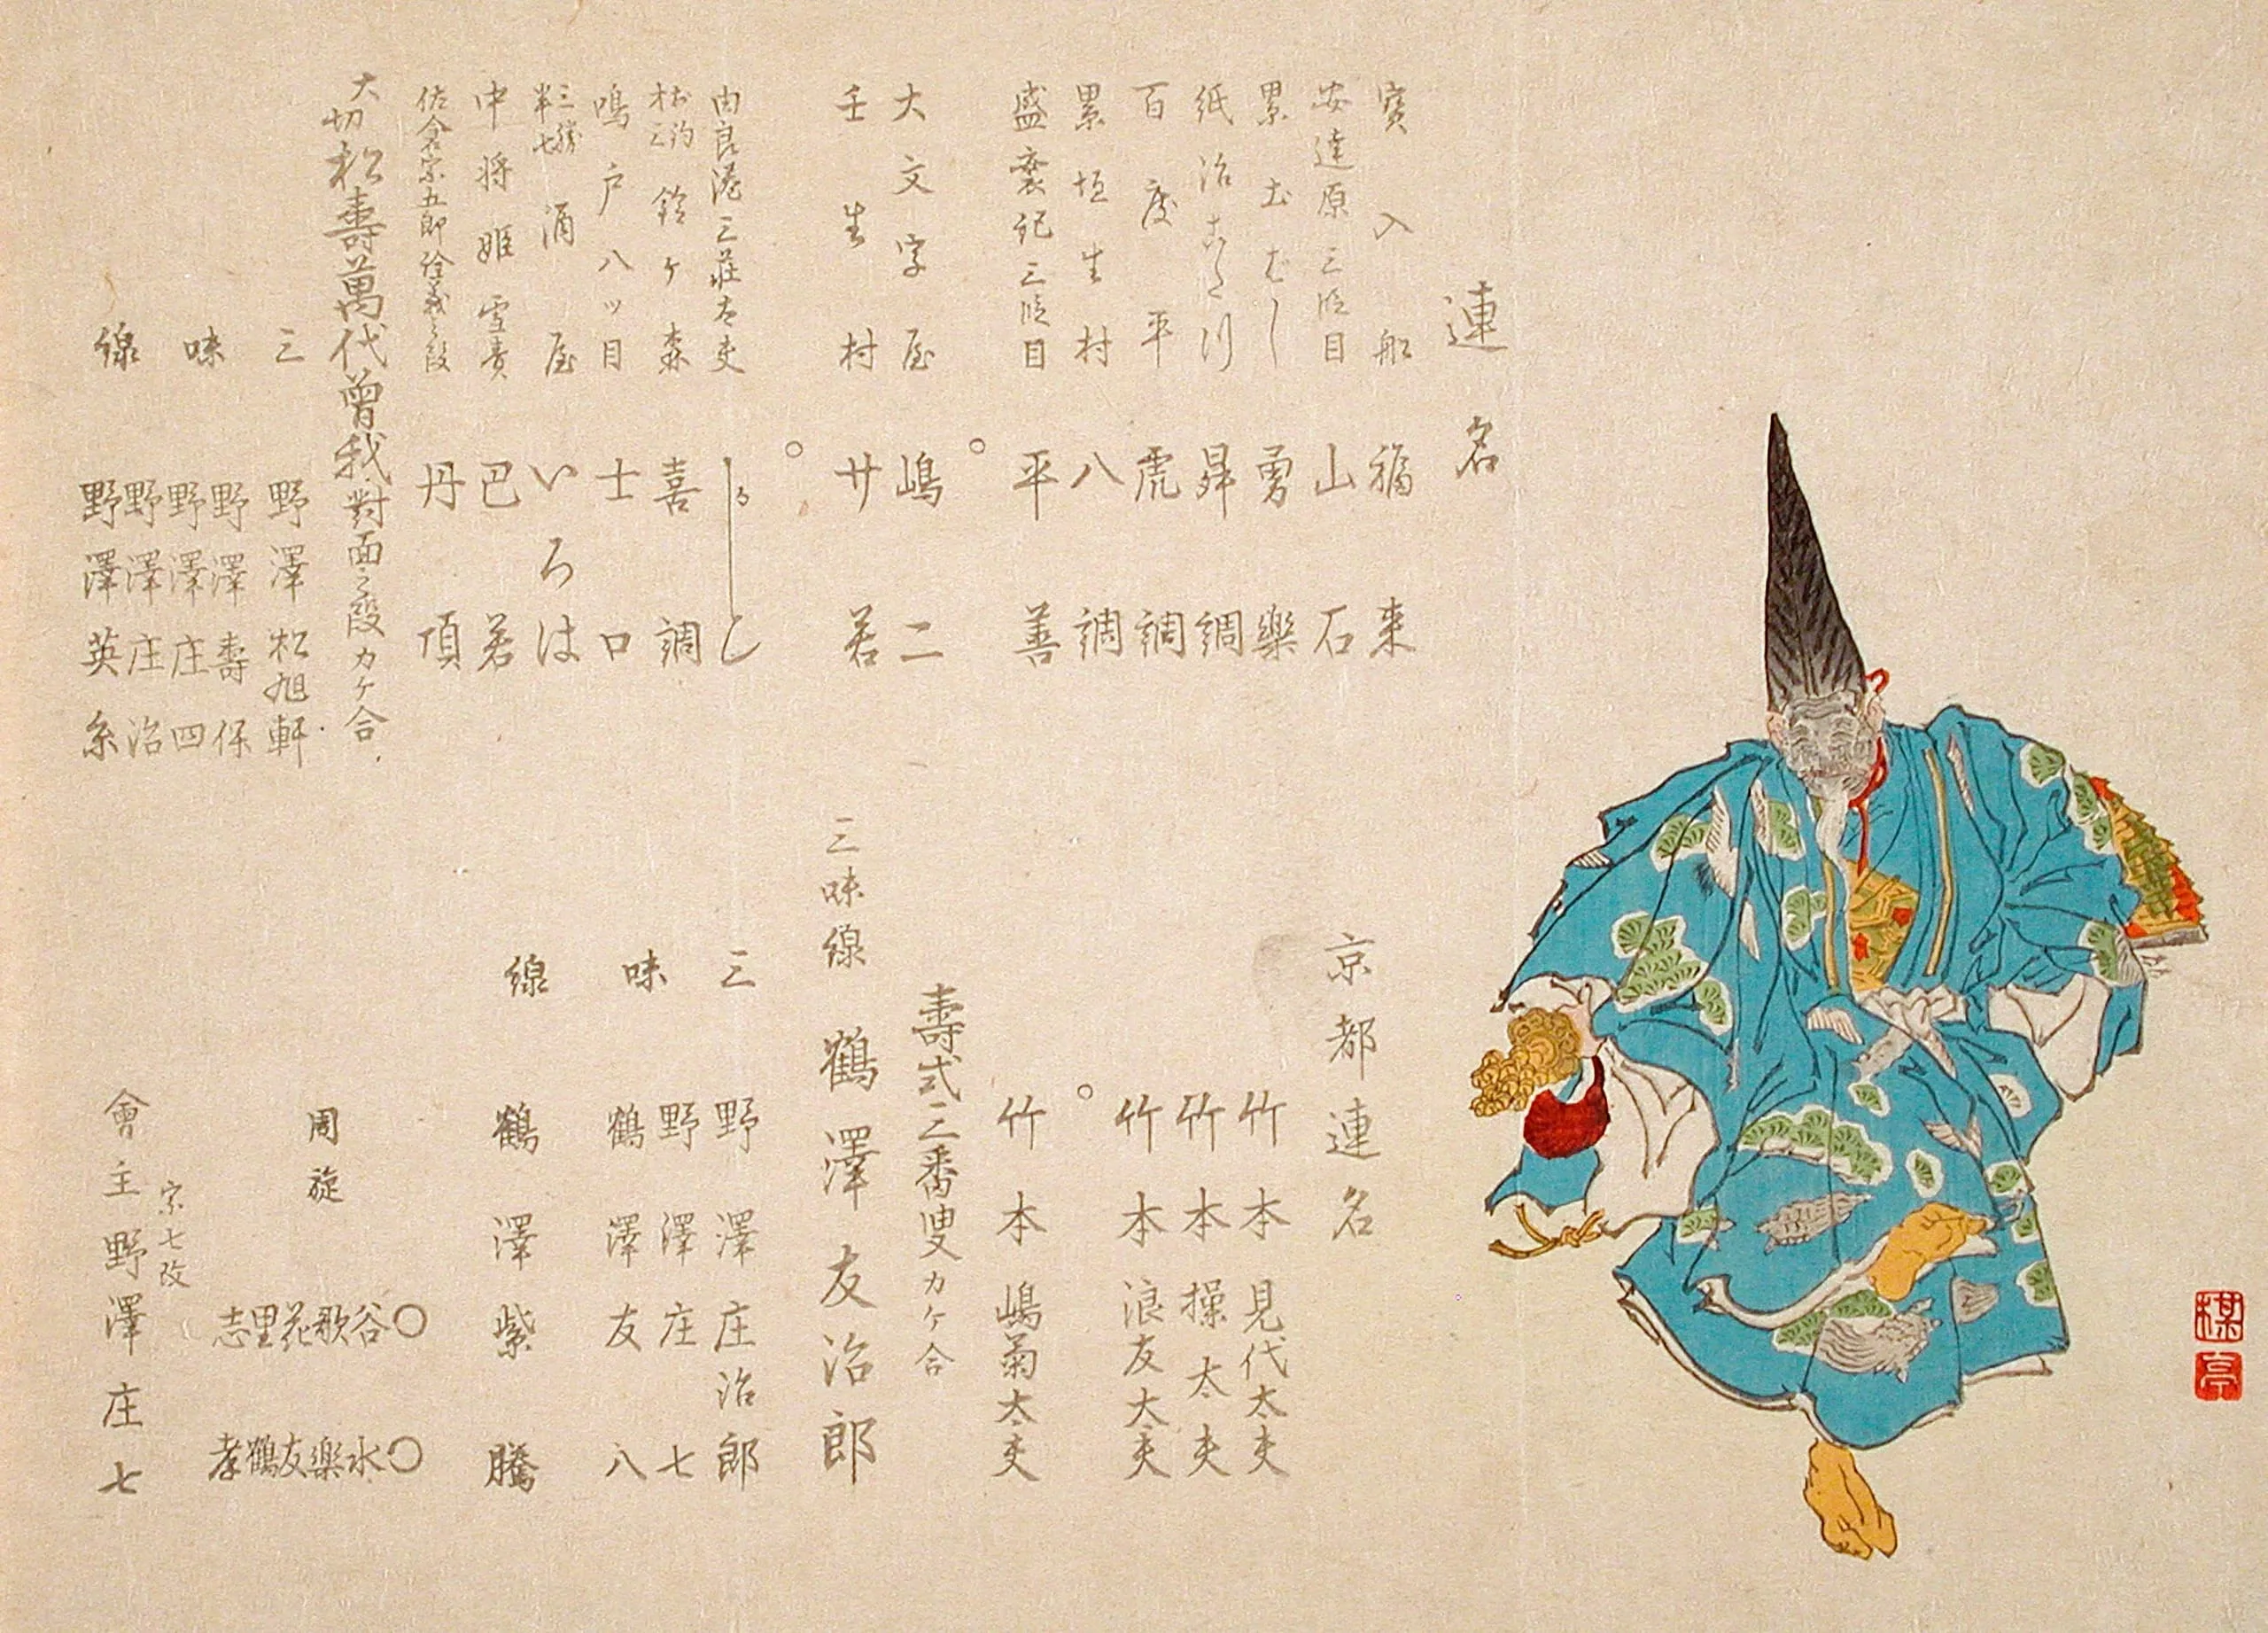 連名
寳入船 福来
安達原三段目 山石
累土むし 勇樂
紙治 舜調
百度平 虎調
累垣生村 八調
盛衰記三段目 平善
大文字屋 嶋二
壬生村 廿若
由良湊三荘太夫
鈴ヶ森 喜調
鳴戸八ッ目 士口
三勝半七 酒屋 いろは
中将姫雪責 巴若
佐倉宗五郎 丹頂
大切 松壽萬代曽我 對面之段カケ合
三味線
野澤松旭軒
野澤壽保
野澤庄四
野澤庄治
野澤英糸
京都連名
竹本見代太夫
竹本操太夫
竹本浪友太夫
竹本嶋菊太夫
壽式三番叟カケ合
三味線 鶴澤友治郎
三味線
野澤庄治郎
野澤庄七
鶴澤友八
鶴澤紫騰
周旋
谷歌花里志
水樂友鶴孝
宗七改
會主野澤庄七
楳亭